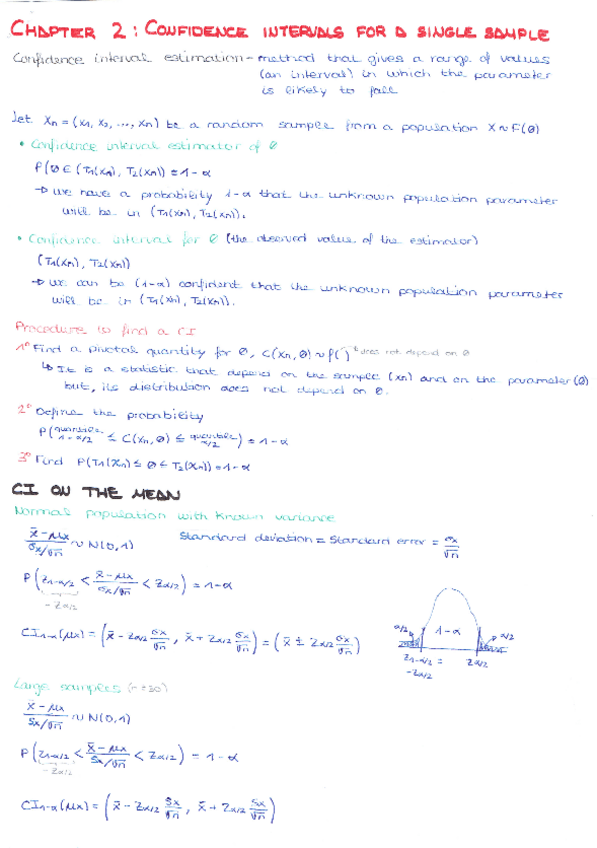 CHAPTER 2: CONFIDENCE INTERVALS FOR A SINGLE SAMPLE
Confidence interval estimation - method that gives a range of values
(an interval) in which the parameter
is likely to fall
Let Xn = (x1, x2, ..., xn) be a random sample from a population X ~ F(θ)
• Confidence interval estimator of θ
P(θ ∈ (T1(Xn), T2(Xn)) = 1-α
→ we have a probability 1-α that the unknown population parameter
will be in (T1(Xn), T2(Xn)).
• Confidence interval for θ (the observed value of the estimator)
(T1(xn), T2(xn))
→ we can be (1-α) confident that the unknown population parameter
will be in (T1(xn), T2(xn)).
Procedure to find a CI
1º Find a pivotal quantity for θ, C(Xn, θ) ~ f( ) does not depend on θ
↳ It is a statistic that depend on the sample (xn) and on the parameter (θ)
but, its distribution does not depend on θ.
2º Define the probability
P(quantile 1-α/2 ≤ C(Xn, θ) ≤ quantile α/2) = 1-α
3º Find P(T1(Xn) ≤ θ ≤ T2(Xn)) = 1-α
CI ON THE MEAN
Normal population with known variance
x̄-μx / σx/√n ~ N(0,1) Standard deviation = Standard error = σx/√n
P(z1-α/2 < x̄-μx / σx/√n < zα/2) = 1-α
-zα/2
CI1-α(μx) = (x̄ - zα/2 σx/√n, x̄ + zα/2 σx/√n) = (x̄ ± zα/2 σx/√n)
α/2 1-α α/2
z1-α/2 = zα/2
-zα/2
Large samples (n ≥ 30)
x̄-μx / sx/√n ~ N(0,1)
P(z1-α/2 < x̄-μx / sx/√n < zα/2) = 1-α
-zα/2
CI1-α(μx) = (x̄ - zα/2 sx/√n, x̄ + zα/2 sx/√n)